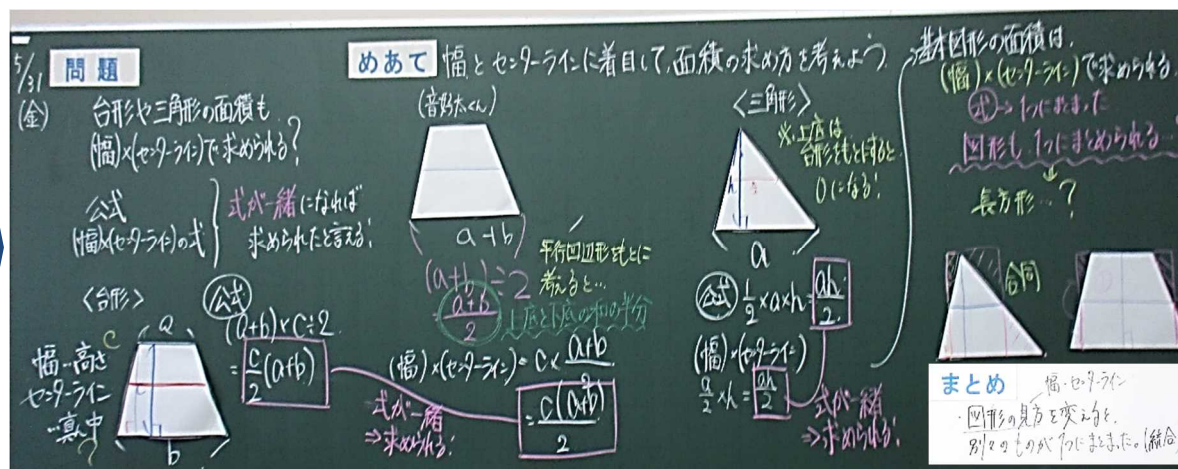 5/31
(金)
問題
台形や三角形の面積も
(幅)×(センターライン)で求められる?
公式
(幅)×(センターライン)の式
式が一緒になれば
求められたと言える!
<台形>
a
幅…高さ
c
センターライン
…真中
b
公式
(a+b)×c÷2
= c/2 (a+b)
めあて
幅とセンターラインに着目して、面積の求め方を考えよう
a+b
(a+b)÷2
a+b/2
平行四辺形をもとに
考えると…
上底と下底の和の半分
(幅)×(センターライン) = c× a+b/2
= c(a+b)/2
式が一緒
⇒求められる!
<三角形>
※上底は
台形をもとにすると
0になる!
h
a
公式 1/2 ×a×h = ah/2
(幅)×(センターライン)
a/2 ×h = ah/2
式が一緒
⇒求められる!
基本図形の面積は、
(幅)×(センターライン)で求められる
式→1つにまとまった
図形も1つにまとめられる…
長方形…?
合同
まとめ
幅・センターライン
・図形の見方を変えると、
別々のものが1つにまとまった。(統合